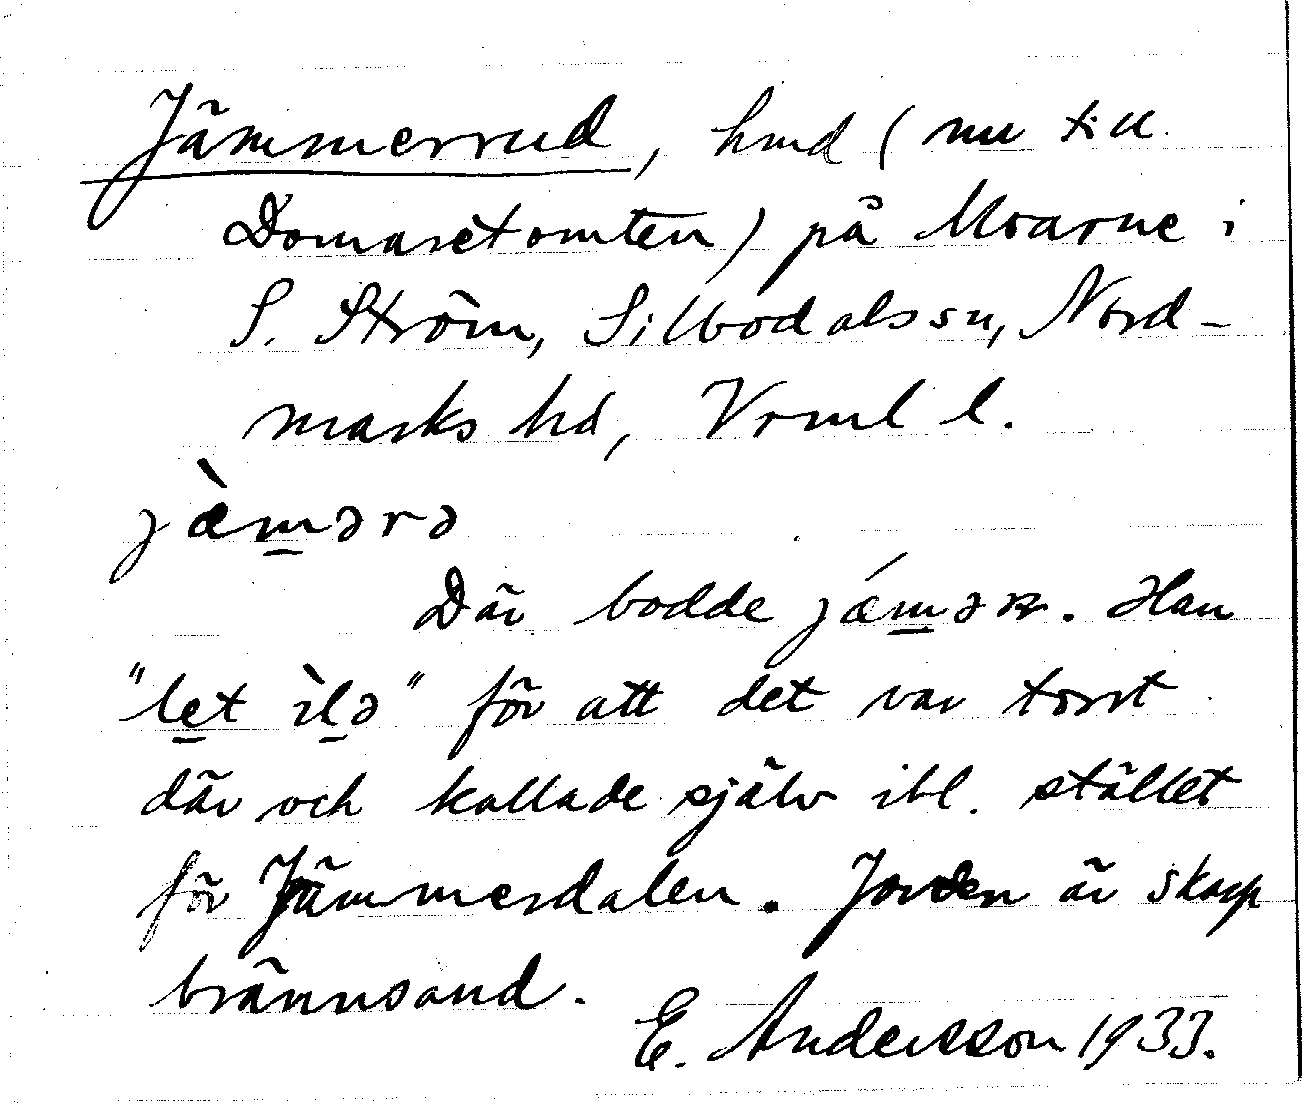 Jämmerrud, hmd (nu till
Domaretomten) på Moarne i
S. Ström, Silbodals sn, Nord-
marks hd, Vrml l.
jæ̀m̱ərə
Där bodde jǽm̱ər. Han
"le̱t ìḻə" för att det var torrt
där och kallade själv ibl. stället
för Jämmerdalen. Jorden är skarp
brännsand.
E. Andersson 1933.